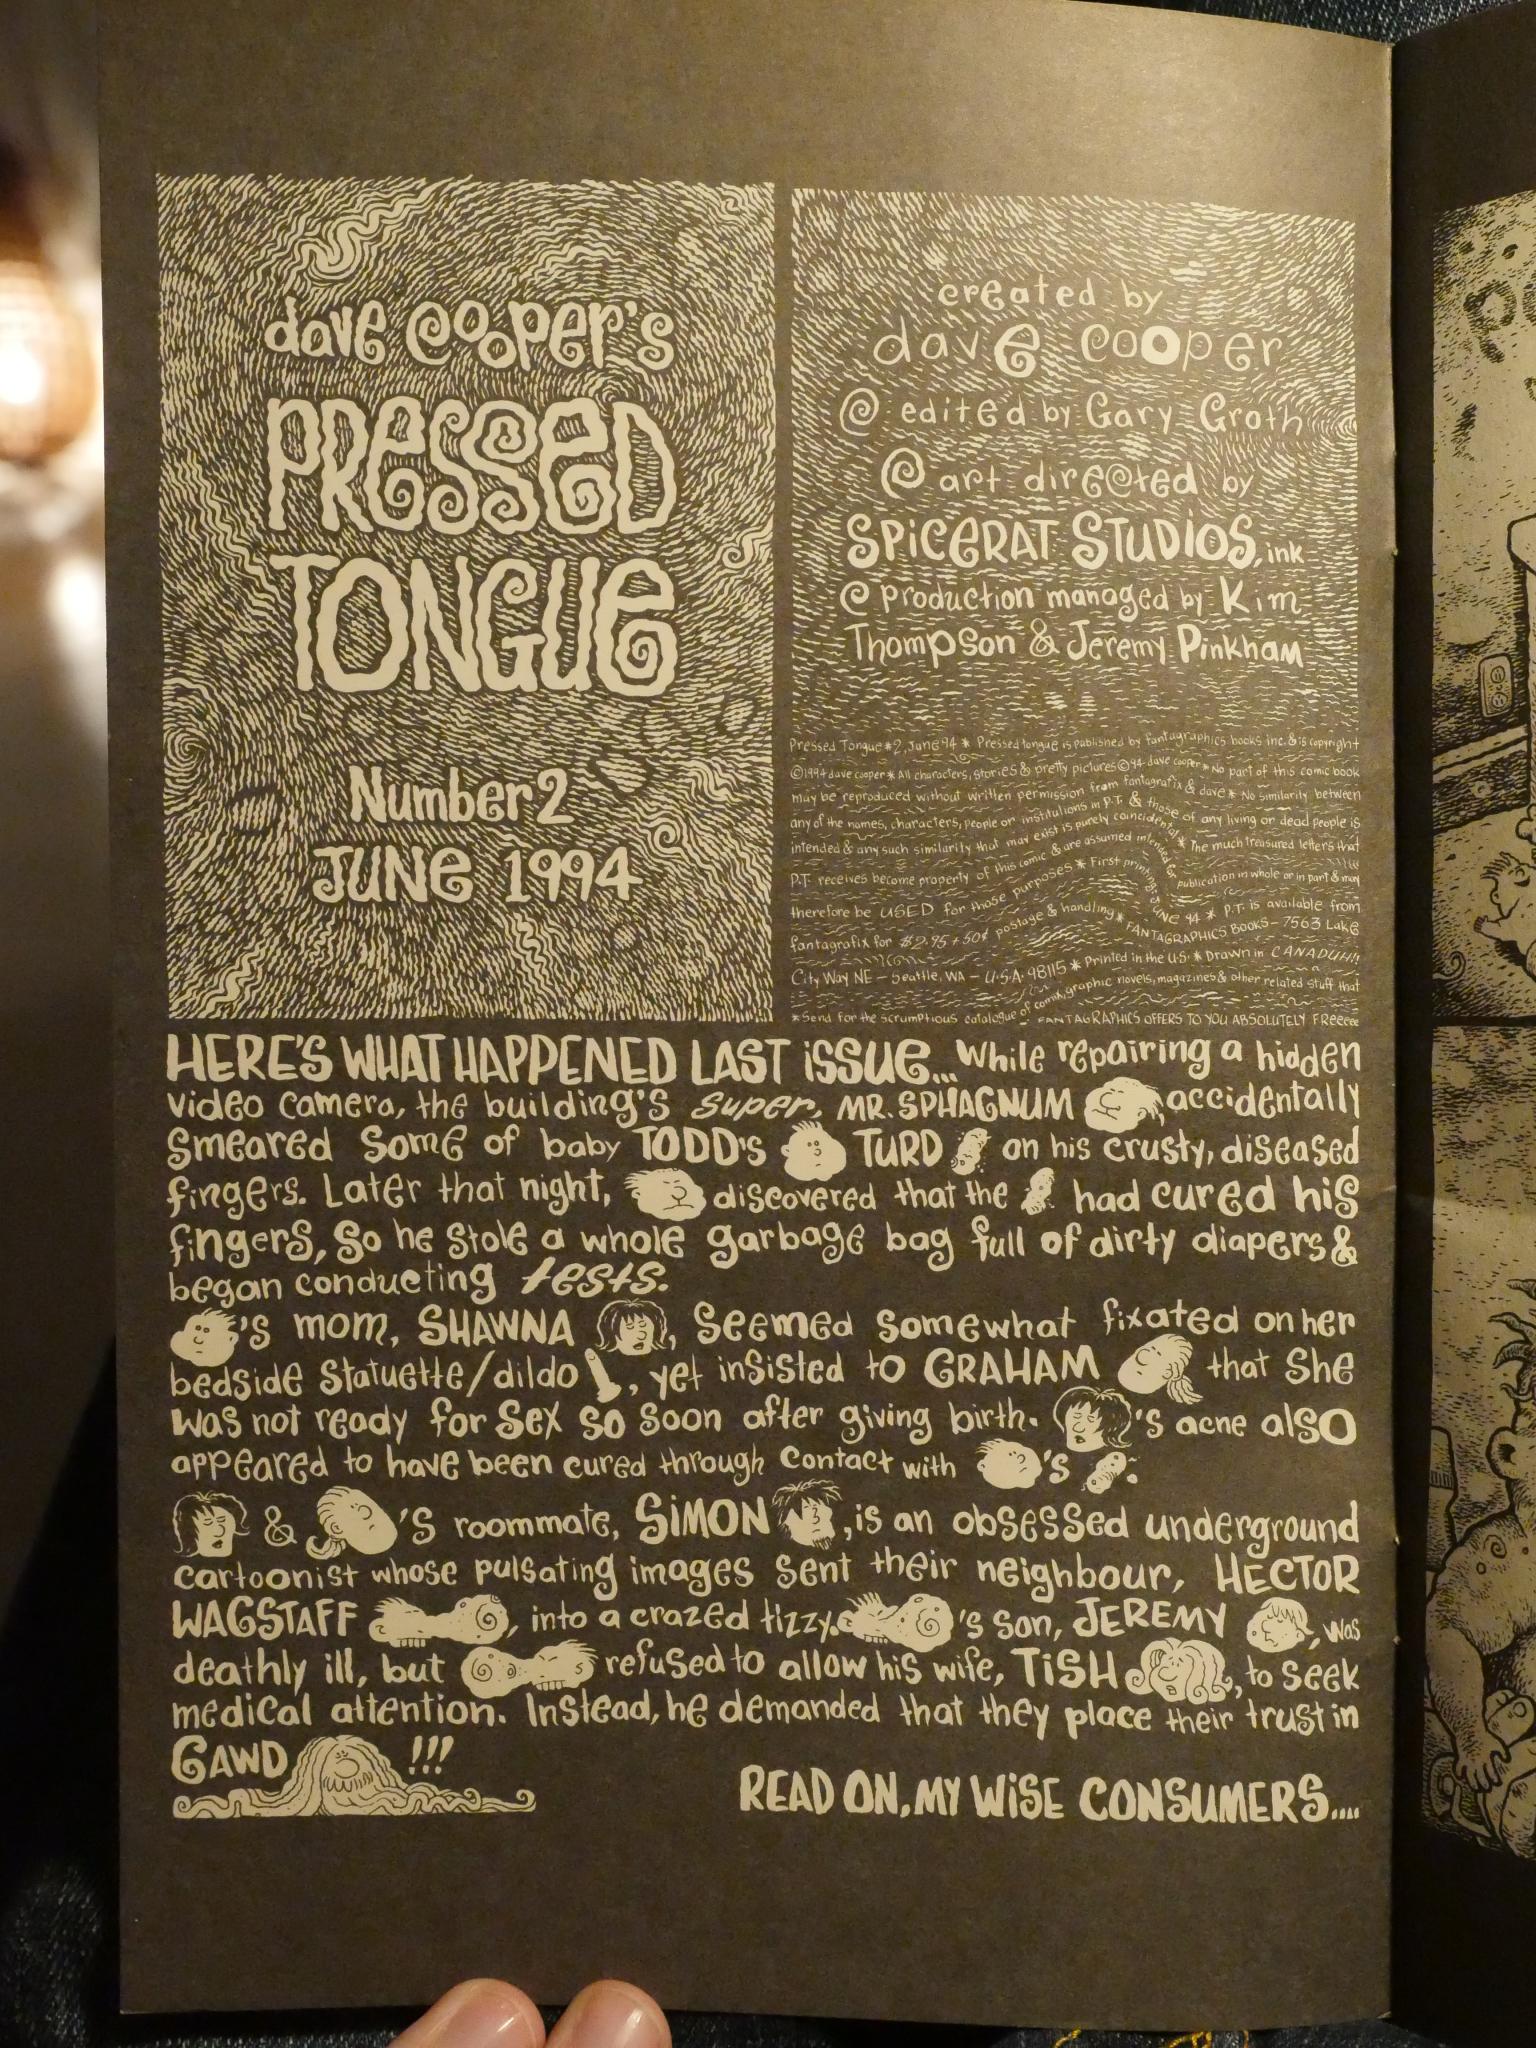 dave cooper's
PRESSED
TONGUE
Number 2
JUNE 1994
created by
dave cooper
@ edited by Gary Groth
@ art directed by
SPICERAT STUDIOS, ink
@ production managed by Kim
Thompson & Jeremy Pinkham
Pressed Tongue #2, June 94 * Pressed tongue is published by fantagraphics books inc. & is copyright
©1994 dave cooper * All characters, stories & pretty pictures © 94 dave cooper * No part of this comic book
may be reproduced without written permission from fantagrafix & dave * No similarity between
any of the names, characters, people or institutions in P.T. & those of any living or dead people is
intended & any such similarity that may exist is purely coincidental * The much treasured letters that
P.T. receives become property of this comic & are assumed intended for publication in whole or in part & may
therefore be USED for those purposes * First printing: June 94 * P.T. is available from
fantagrafix for $2.95 + 50¢ postage & handling * FANTAGRAPHICS BOOKS - 7563 Lake
City Way NE - Seattle, WA - U.S.A. 98115 * Printed in the U.S. * Drawn in CANADUH!!
* Send for the scrumptious catalogue of comix, graphic novels, magazines & other related stuff that
FANTAGRAPHICS OFFERS TO YOU ABSOLUTELY FREEEEE
HERE'S WHAT HAPPENED LAST ISSUE... While repairing a hidden
video camera, the building's super, MR. SPHAGNUM, accidentally
smeared some of baby TODD's TURD on his crusty, diseased
fingers. Later that night, discovered that the had cured his
fingers, so he stole a whole garbage bag full of dirty diapers &
began conducting tests.
's mom, SHAWNA, seemed somewhat fixated on her
bedside statuette/dildo, yet insisted to GRAHAM that she
was not ready for sex so soon after giving birth. 's acne also
appeared to have been cured through contact with 's .
& 's roommate, SIMON, is an obsessed underground
cartoonist whose pulsating images sent their neighbour, HECTOR
WAGSTAFF, into a crazed tizzy. 's son, JEREMY, was
deathly ill, but refused to allow his wife, TISH, to seek
medical attention. Instead, he demanded that they place their trust in
GAWD !!!
READ ON, MY WISE CONSUMERS....